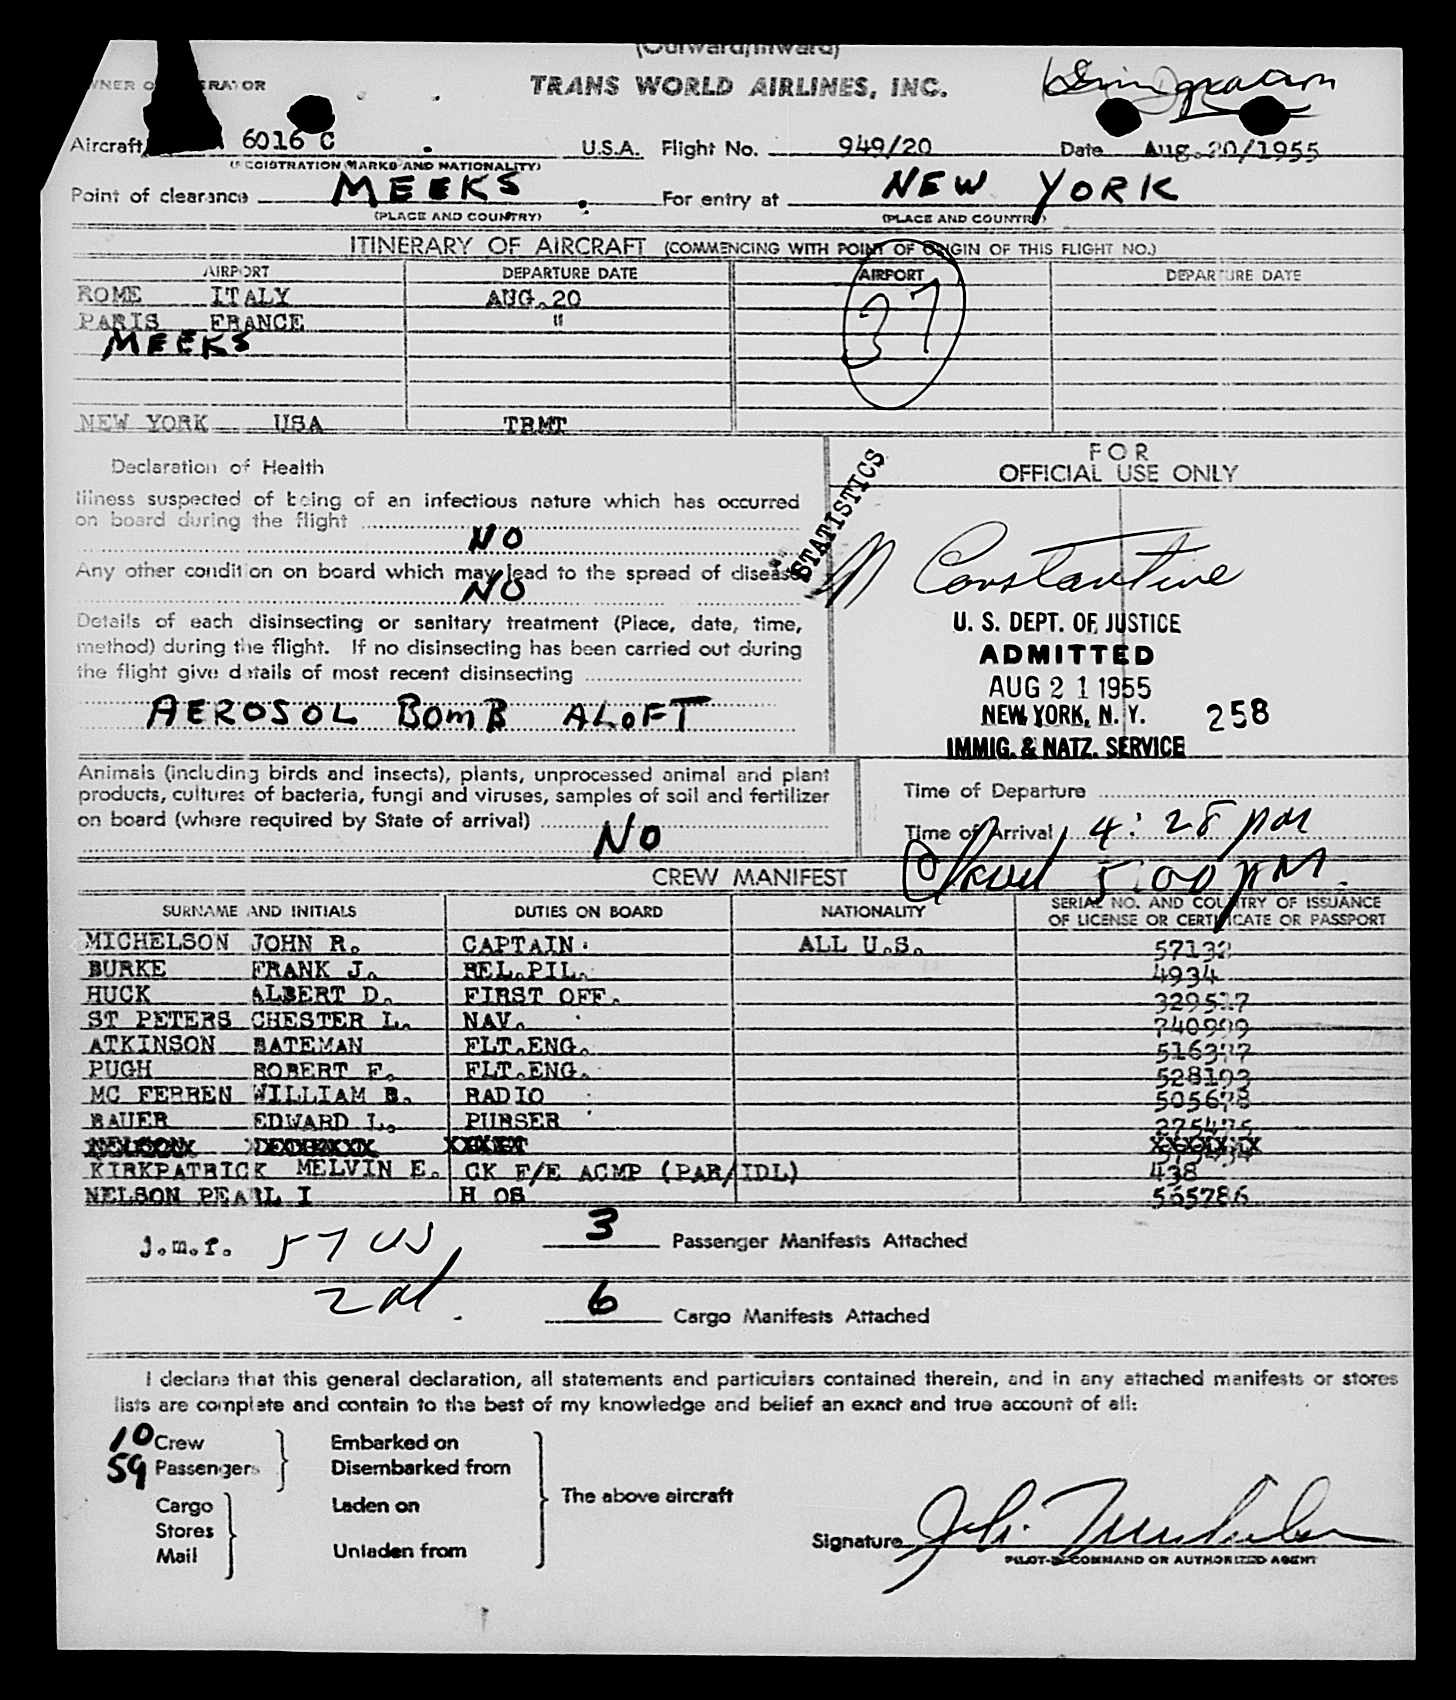 (Outward/Inward)
OWNER OPERATOR
TRANS WORLD AIRLINES, INC.
Immigration
Aircraft 6016 C U.S.A. Flight No. 949/20 Date Aug. 20/1955
(REGISTRATION MARKS AND NATIONALITY)
Point of clearance MEEKS For entry at NEW YORK
(PLACE AND COUNTRY) (PLACE AND COUNTRY)
ITINERARY OF AIRCRAFT (COMMENCING WITH POINT OF ORIGIN OF THIS FLIGHT NO.)
AIRPORT DEPARTURE DATE AIRPORT DEPARTURE DATE
ROME ITALY AUG. 20
PARIS FRANCE "
MEEKS
37
NEW YORK USA TRMT
Declaration of Health
Illness suspected of being of an infectious nature which has occurred
on board during the flight
NO
Any other condition on board which may lead to the spread of disease
NO
Details of each disinsecting or sanitary treatment (Place, date, time,
method) during the flight. If no disinsecting has been carried out during
the flight give details of most recent disinsecting
AEROSOL BOMB ALOFT
FOR
OFFICIAL USE ONLY
"STATISTICS
Constantine
U. S. DEPT. OF JUSTICE
ADMITTED
AUG 21 1955
NEW YORK, N. Y. 258
IMMIG. & NATZ. SERVICE
Animals (including birds and insects), plants, unprocessed animal and plant
products, cultures of bacteria, fungi and viruses, samples of soil and fertilizer
on board (where required by State of arrival)
NO
Time of Departure
Time of Arrival 4:28 pm
5:00 PM.
CREW MANIFEST
SURNAME AND INITIALS DUTIES ON BOARD NATIONALITY SERIAL NO. AND COUNTRY OF ISSUANCE
OF LICENSE OR CERTIFICATE OR PASSPORT
MICHELSON JOHN R. CAPTAIN ALL U.S. 57132
BURKE FRANK J. REL.PIL. 4934
HUCK ALBERT D. FIRST OFF. 329517
ST PETERS CHESTER L. NAV. 740999
ATKINSON BATEMAN FLT.ENG. 516377
PUGH ROBERT F. FLT.ENG. 528193
MC FERREN WILLIAM B. RADIO 505678
BAUER EDWARD L. PURSER 275475
KIRKPATRICK MELVIN E. CK F/E ACMP (PAR/IDL) 438
NELSON PEARL I H OS 565786
j.m.r. 57 US 3 Passenger Manifests Attached
2 al. 6 Cargo Manifests Attached
I declare that this general declaration, all statements and particulars contained therein, and in any attached manifests or stores
lists are complete and contain to the best of my knowledge and belief an exact and true account of all:
10 Crew Embarked on
59 Passengers Disembarked from
Cargo Laden on
The above aircraft
Stores
Mail Unladen from
Signature
PILOT-IN-COMMAND OR AUTHORIZED AGENT